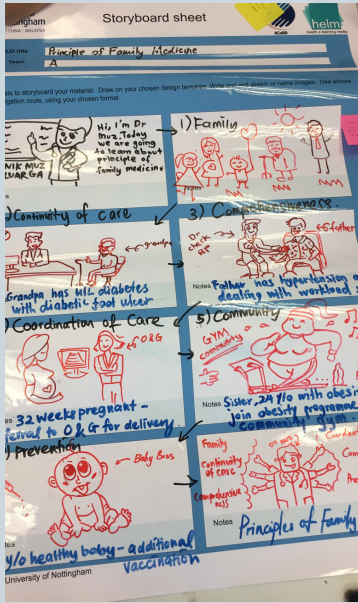 ingham
CHINA | MALAYSIA
Storyboard sheet
ACORD
helm
health e-learning media
LO title
Principle of Family Medicine
Team
A
els to storyboard your material. Draw on your chosen design template. Write text and sketch or name images. Use arrows
igation route, using your chosen format
Hi, I'm Dr
Muz. Today
we are going
to learn about
principle of
family medicine
NIK MUZ
UARGA
1) Family
Notes
) Continuity of care
grandpa
Grandpa has ulc diabetes
with diabetic foot ulcer
3) Comprehensiveness.
Dr
check
BP
father
Notes
Father has hypertension
dealing with workload
) Coordination of Care
O&G
32 weeks pregnant -
ferral to O&G for delivery
5) Community
GYM
community
Notes
Sister, 24 y/o with obesi
join obesity programme
community gym
) Prevention
Baby Boss
y/o healthy baby - additional
vaccination
Family
continuity
of care
comprehensive
ness
Notes
Principles of Family
University of Nottingham